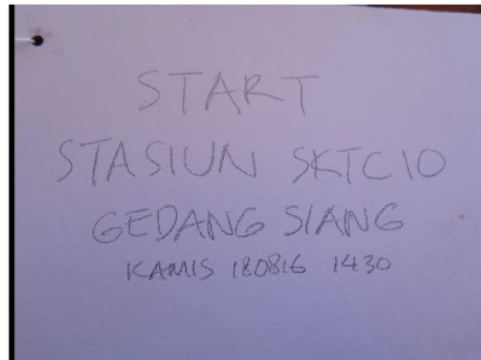 START
STASIUN SKTC10
GEDANG SIANG
KAMIS 180816 1430